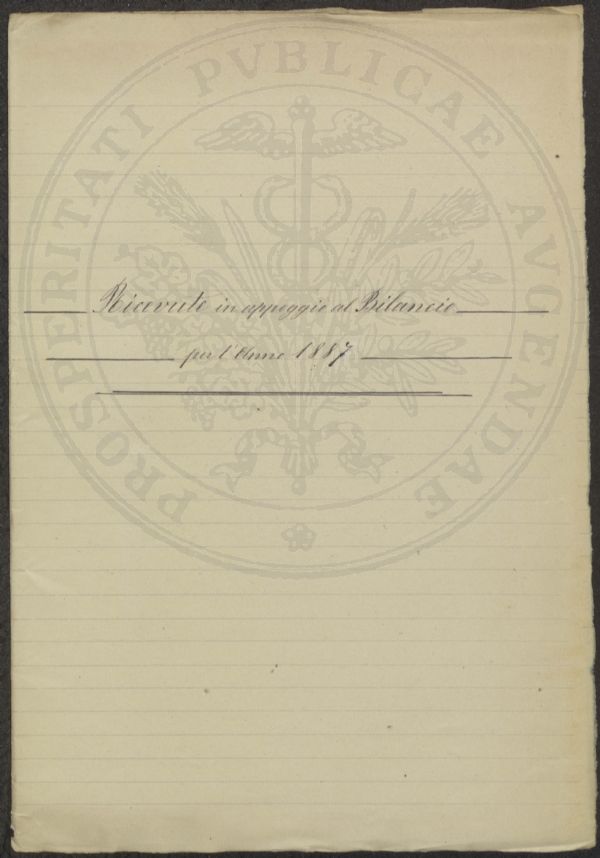 PROSPERITATI PVBLICAE AVGENDAE
Ricevute in appoggio al Bilancio
per l'Anno 1887